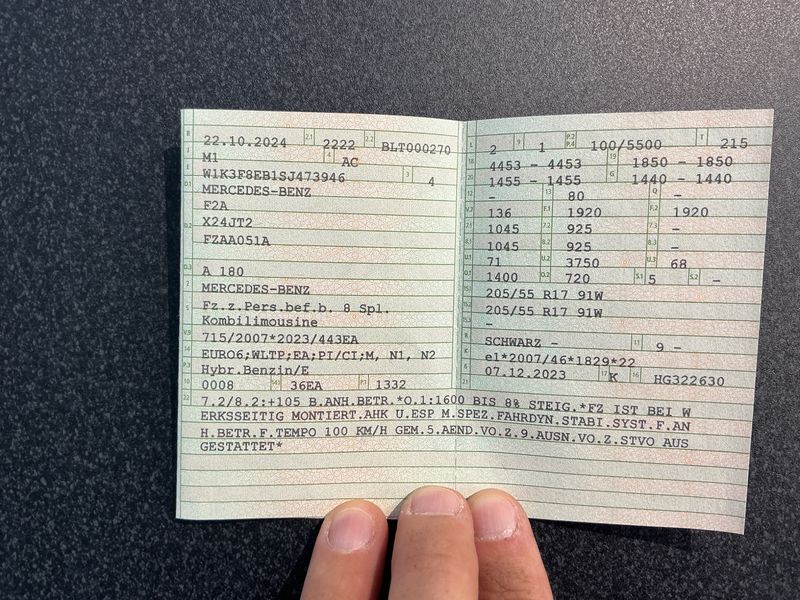 B 22.10.2024 2.1 2222 2.2 BLT000270
J M1 4 AC
E W1K3F8EB1SJ473946 3 4
D.1 MERCEDES-BENZ
F2A
D.2 X24JT2
FZAA051A
D.3 A 180
2 MERCEDES-BENZ
5 Fz.z.Pers.bef.b. 8 Spl.
Kombilimousine
V.9 715/2007*2023/443EA
14 EURO6;WLTP;EA;PI/CI;M, N1, N2
P.3 Hybr.Benzin/E
10 0008 14.1 36EA P.1 1332
22 7.2/8.2:+105 B.ANH.BETR.*O.1:1600 BIS 8% STEIG.*FZ IST BEI W
ERKSSEITIG MONTIERT.AHK U.ESP M.SPEZ.FAHRDYN.STABI.SYST.F.AN
H.BETR.F.TEMPO 100 KM/H GEM.5.AEND.VO.Z.9.AUSN.VO.Z.STVO AUS
GESTATTET*
L 2 9 1 P.2 P.4 100/5500 T 215
18 4453 - 4453 19 1850 - 1850
20 1455 - 1455 G 1440 - 1440
12 - 13 80 Q -
V.7 136 F.1 1920 F.2 1920
7.1 1045 7.2 925 7.3 -
8.1 1045 8.2 925 8.3 -
U.1 71 U.2 3750 U.3 68
O.1 1400 O.2 720 S.1 5 S.2 -
15.1 205/55 R17 91W
15.2 205/55 R17 91W
15.3 -
R SCHWARZ - 11 9 -
K e1*2007/46*1829*22
6 07.12.2023 17 K 16 HG322630
21